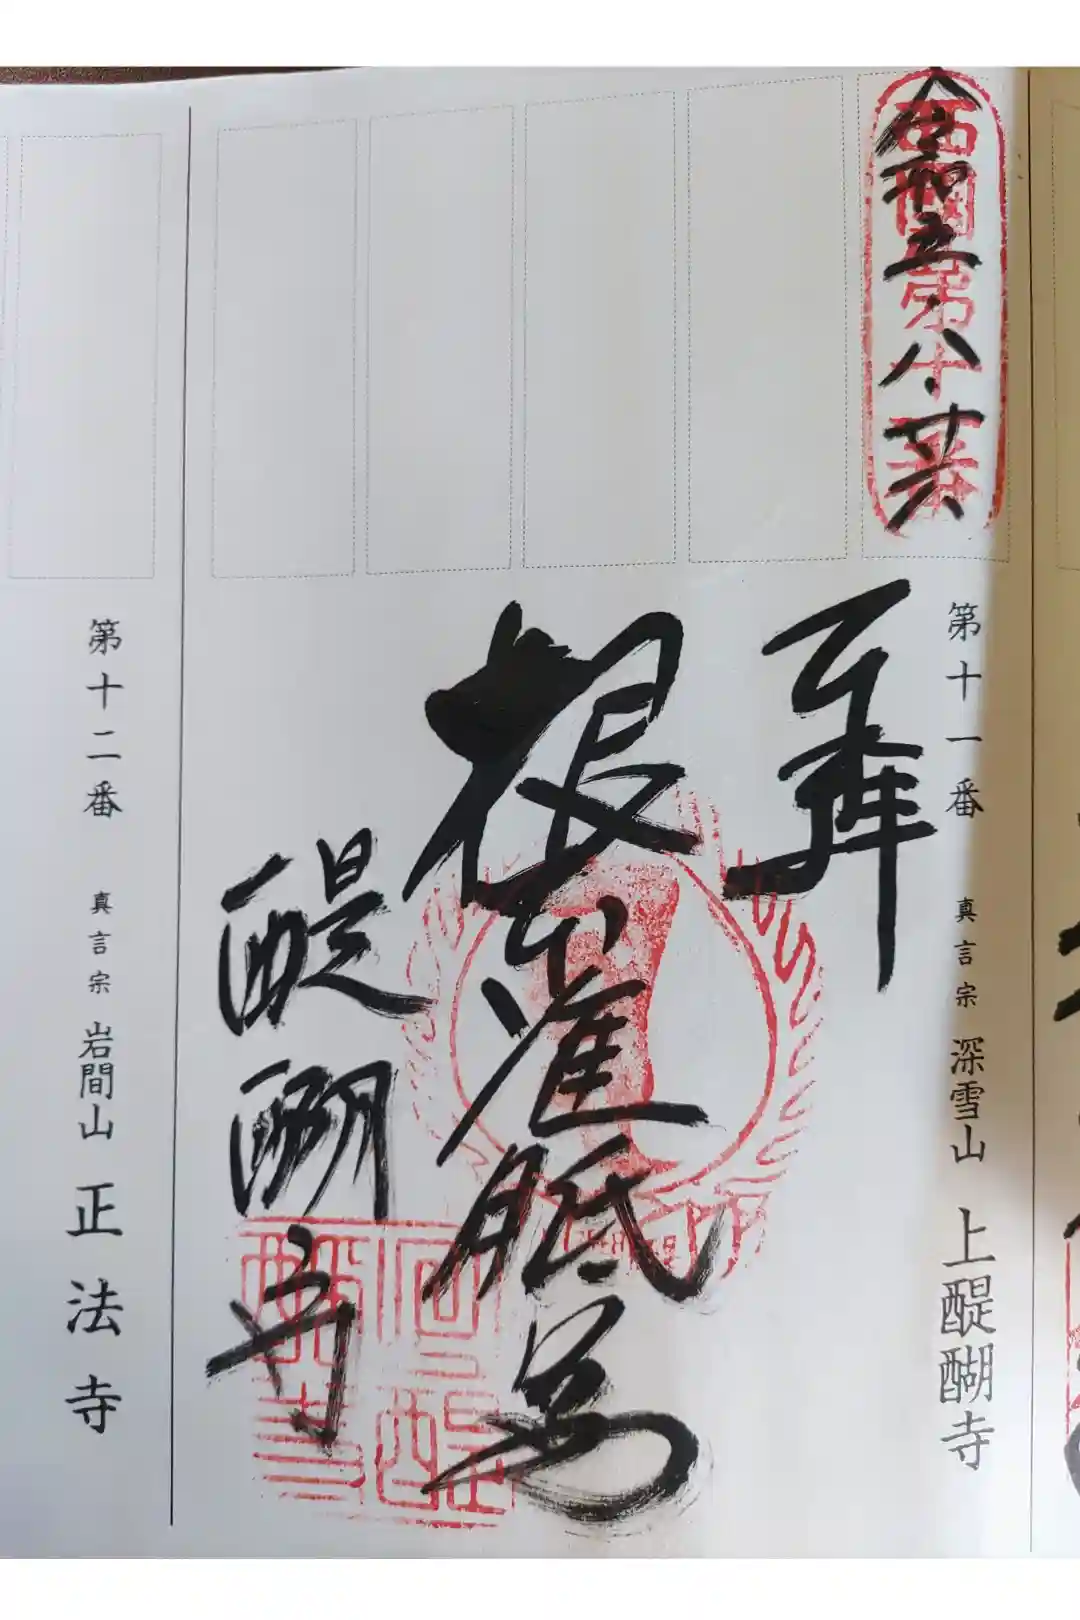 西國第十一番
令和五・八・廿六
第十一番 真言宗 深雪山 上醍醐寺
奉拝
根本准胝
醍醐寺
第十二番 真言宗 岩間山 正法寺